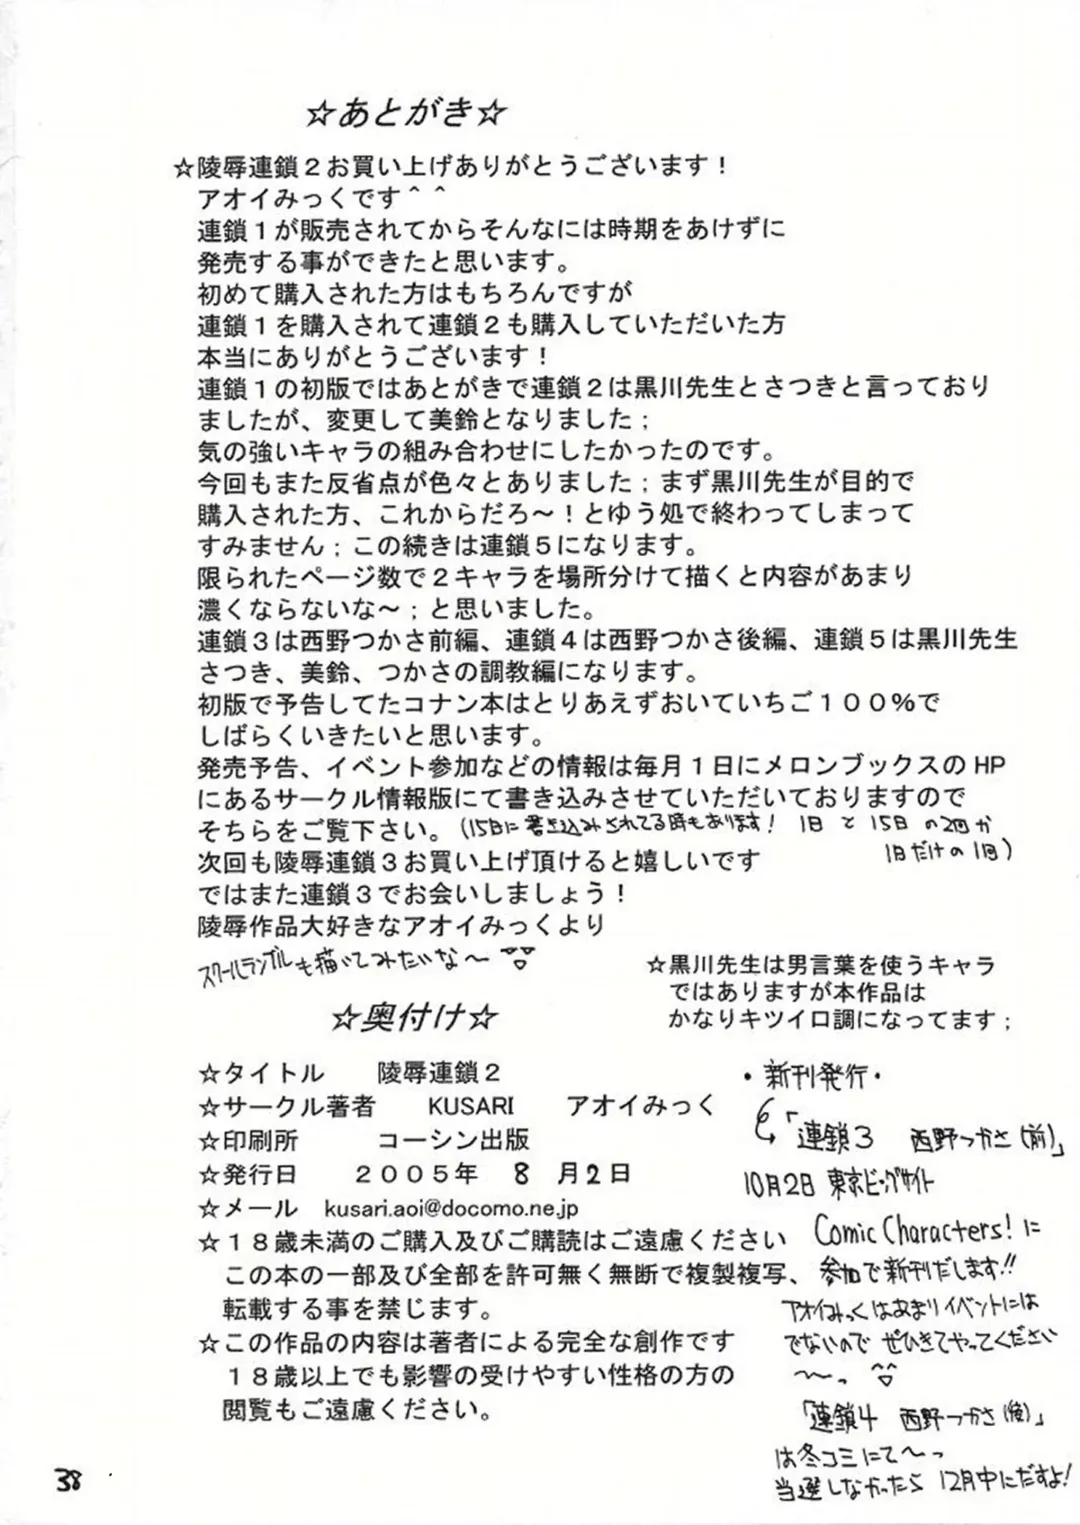 ☆あとがき☆
☆陵辱連鎖２お買い上げありがとうございます！
アオイみっくです＾＾
連鎖１が販売されてからそんなには時期をあけずに
発売する事ができたと思います。
初めて購入された方はもちろんですが
連鎖１を購入されて連鎖２も購入していただいた方
本当にありがとうございます！
連鎖１の初版ではあとがきで連鎖２は黒川先生とさつきと言っており
ましたが、変更して美鈴となりました；
気の強いキャラの組み合わせにしたかったのです。
今回もまた反省点が色々とありました；まず黒川先生が目的で
購入された方、これからだろ～！とゆう処で終わってしまって
すみません；この続きは連鎖５になります。
限られたページ数で２キャラを場所分けて描くと内容があまり
濃くならないな～；と思いました。
連鎖３は西野つかさ前編、連鎖４は西野つかさ後編、連鎖５は黒川先生
さつき、美鈴、つかさの調教編になります。
初版で予告してたコナン本はとりあえずおいていちご１００％で
しばらくいきたいと思います。
発売予告、イベント参加などの情報は毎月１日にメロンブックスのHP
にあるサークル情報版にて書き込みさせていただいておりますので
そちらをご覧下さい。(15日に書き込みされてる時もあります! 1日と15日の2回か
1日だけの1回)
次回も陵辱連鎖３お買い上げ頂けると嬉しいです
ではまた連鎖３でお会いしましょう！
陵辱作品大好きなアオイみっくより
スクールランブルも描いてみたいな～
☆黒川先生は男言葉を使うキャラ
ではありますが本作品は
かなりキツイ口調になってます；
☆奥付け☆
☆タイトル　　陵辱連鎖２
☆サークル著者　　KUSARI　　アオイみっく
☆印刷所　　　コーシン出版
☆発行日　　２００５年　８　月２日
☆メール　kusari.aoi@docomo.ne.jp
☆１８歳未満のご購入及びご購読はご遠慮ください
この本の一部及び全部を許可無く無断で複製複写、
転載する事を禁じます。
☆この作品の内容は著者による完全な創作です
１８歳以上でも影響の受けやすい性格の方の
閲覧もご遠慮ください。
・新刊発行・
「連鎖3　西野つかさ(前)」
10月2日 東京ビッグサイト
Comic Characters!に
参加で新刊だします!!
アオイみっくはあまりイベントには
でないので ぜひきてやってください
～っ
「連鎖4　西野つかさ(後)」
は冬コミにて～っ
当選しなかったら 12月中にだすよ!
38